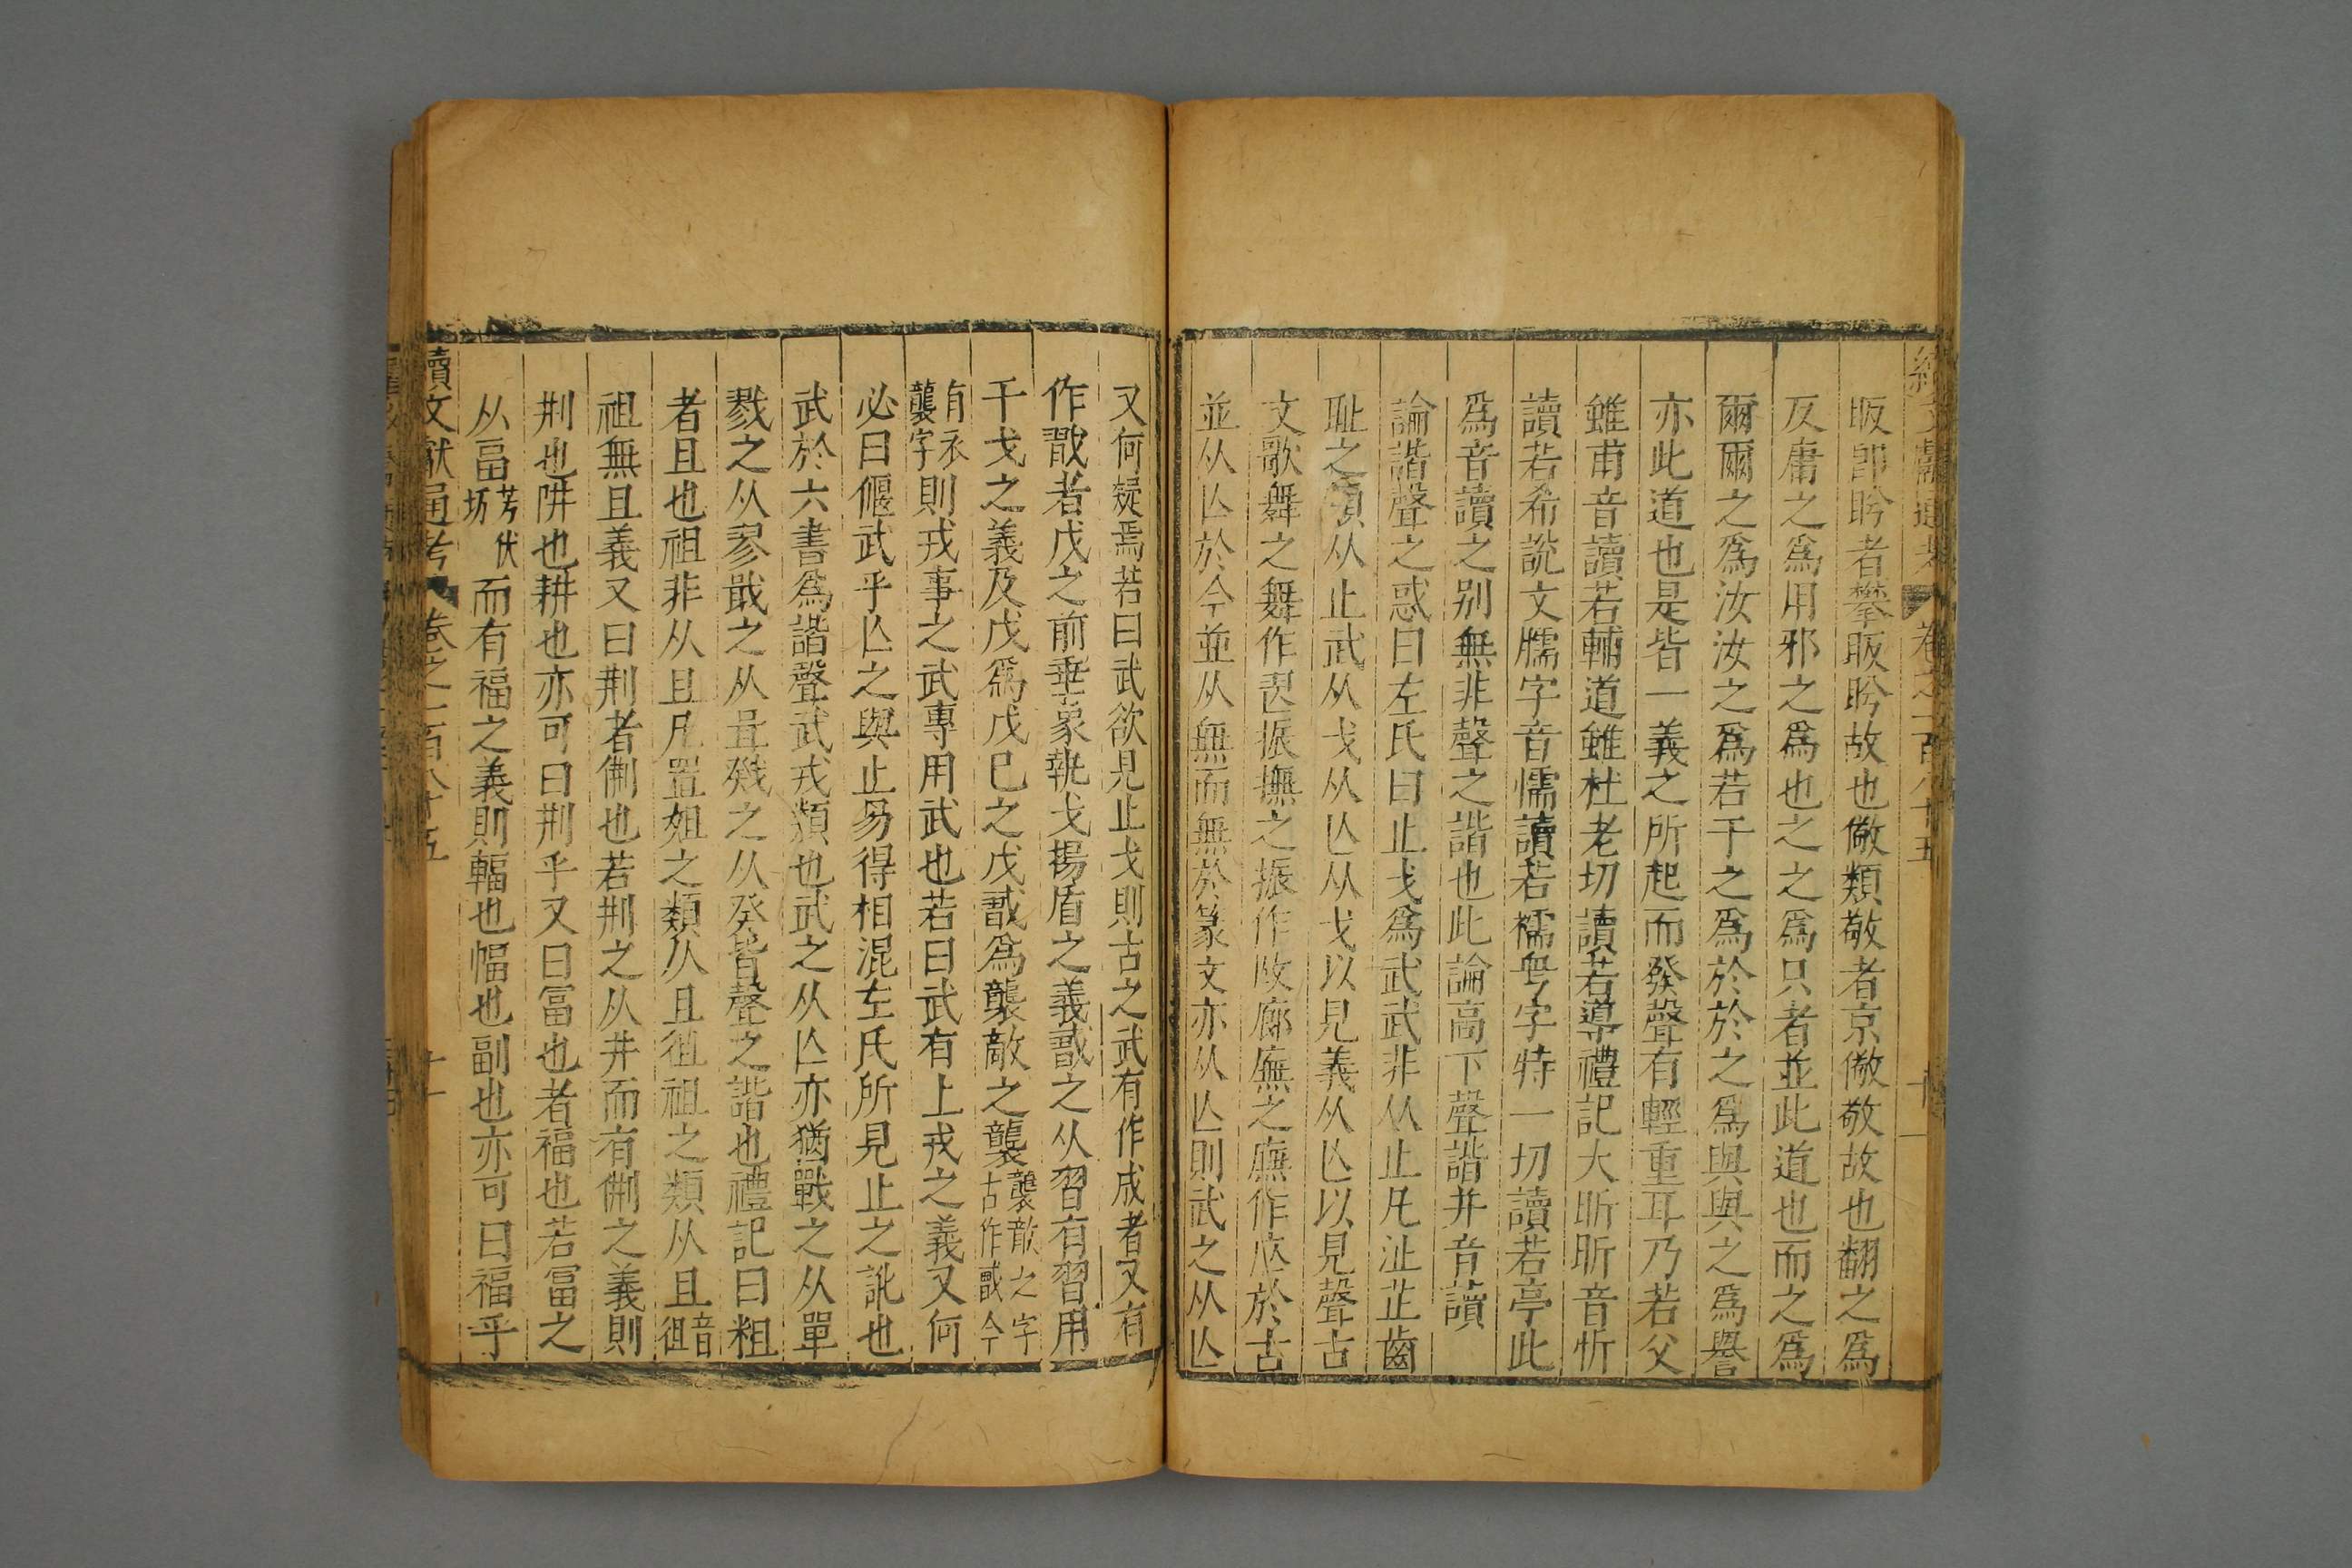 續文獻通考 卷之一百八十五 十
眅卽盻者攀眅盻故也儆類敬者京儆敬故也翻之爲
反庸之爲用邪之爲也之之爲只者並此道也而之爲
爾爾之爲汝汝之爲若干之爲於於之爲與與之爲譽
亦此道也是皆一義之所起而發聲有輕重耳乃若父
雖甫音讀若輔道雖杜老切讀若導禮記大昕昕音忻
讀若希說文臑字音懦讀若襦甹字特一切讀若亭此
爲音讀之别無非聲之諧也此論高下聲諧并音讀
論諧聲之惑曰左氏曰止戈爲武武非从止凡沚芷齒
耻之類从止武从戈从亾从戈以見義从亾以見聲古
文歌舞之舞作𦐀振撫之撫作㕮廊廡之廡作庄於古
並从亾於今並从無而無於篆文亦从亾則武之从亾
又何疑焉若曰武欲見止戈則古之武有作戍者又有
作戠者戊之前垂象執戈揚盾之義戠之从習有習用
干戈之義及戊爲戊巳之戊戠爲襲敵之襲襲敵之字古作戠今
有衣襲字則戎事之武專用武也若曰武有上戎之義又何
必曰偃武乎亾之與止易得相混左氏所見止之訛也
武於六書爲諧聲武戎類也武之从亾亦猶戰之从單
戮之从翏戢之从咠戣之从癸皆聲之諧也禮記曰粗
者且也祖非从且凡罝姐之類从且徂祖之類从且音徂
祖無且義又曰刑者侀也若刑之从井而有侀之義則
荆也阱也耕也亦可曰刑乎又曰富也者福也若富之
从畐芳伏坊而有福之義則輻也幅也副也亦可曰福乎
續文獻通考 卷之一百八十五 十一